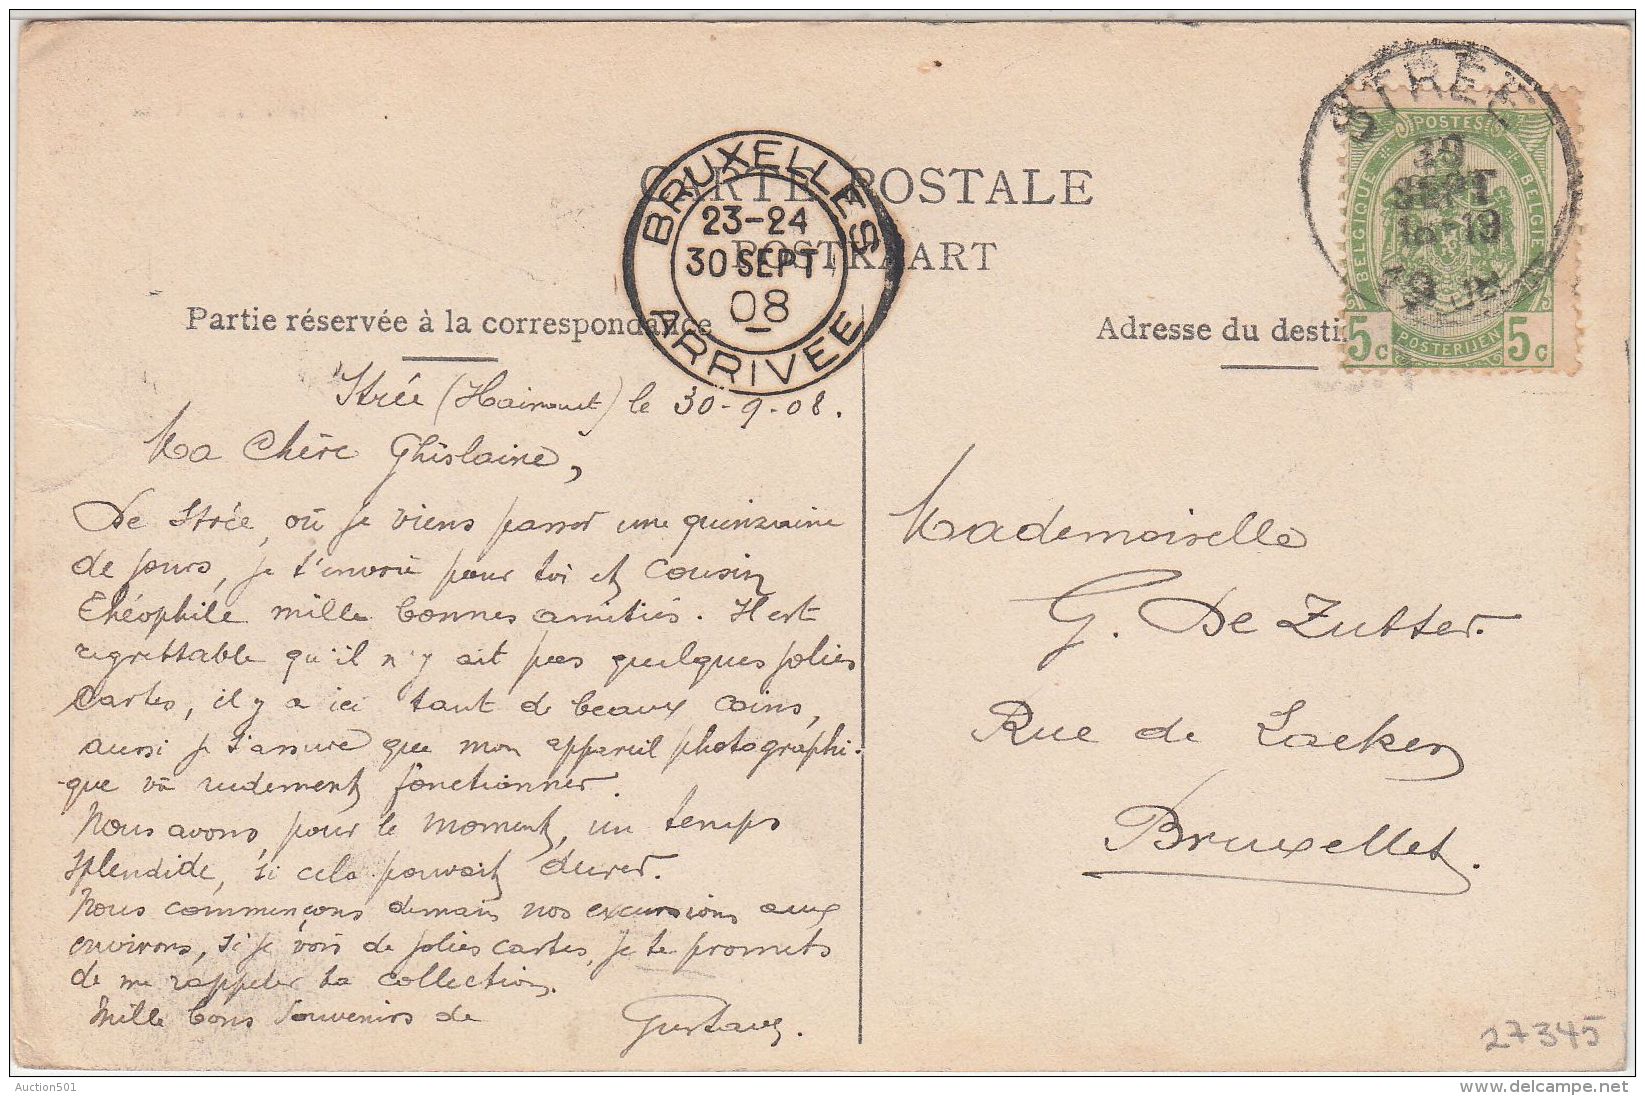 CARTE POSTALE
POSTKAART
BRUXELLES
23-24
30 SEPT
08
ARRIVEE
STRÉE
30
SEPT
18-19
POSTES
BELGIQUE
BELGIE
5c
POSTERIJEN
5c
Partie réservée à la correspondance
Strée (Hainaut) le 30-9-08.
Ma Chère Ghislaine,
De Strée, où je viens passer une quinzaine
de jours, je t'envoie pour toi et cousin
Théophile mille bonnes amitiés. Il est
regrettable qu'il n'y ait pas quelques jolies
cartes, il y a ici tant de beaux coins,
aussi je t'assure que mon appareil photographi-
-que va rudement fonctionner.
Nous avons, pour le moment, un temps
splendide, si cela pouvait durer.
Nous commençons demain nos excursions aux
environs, si je vois de jolies cartes, je te promets
de me rappeler ta collection.
Mille bons souvenirs de
Gustave.
Adresse du desti
Mademoiselle
G. De Zutter.
Rue de Laeken
Bruxelles.
27345
Auction501
www.delcampe.net